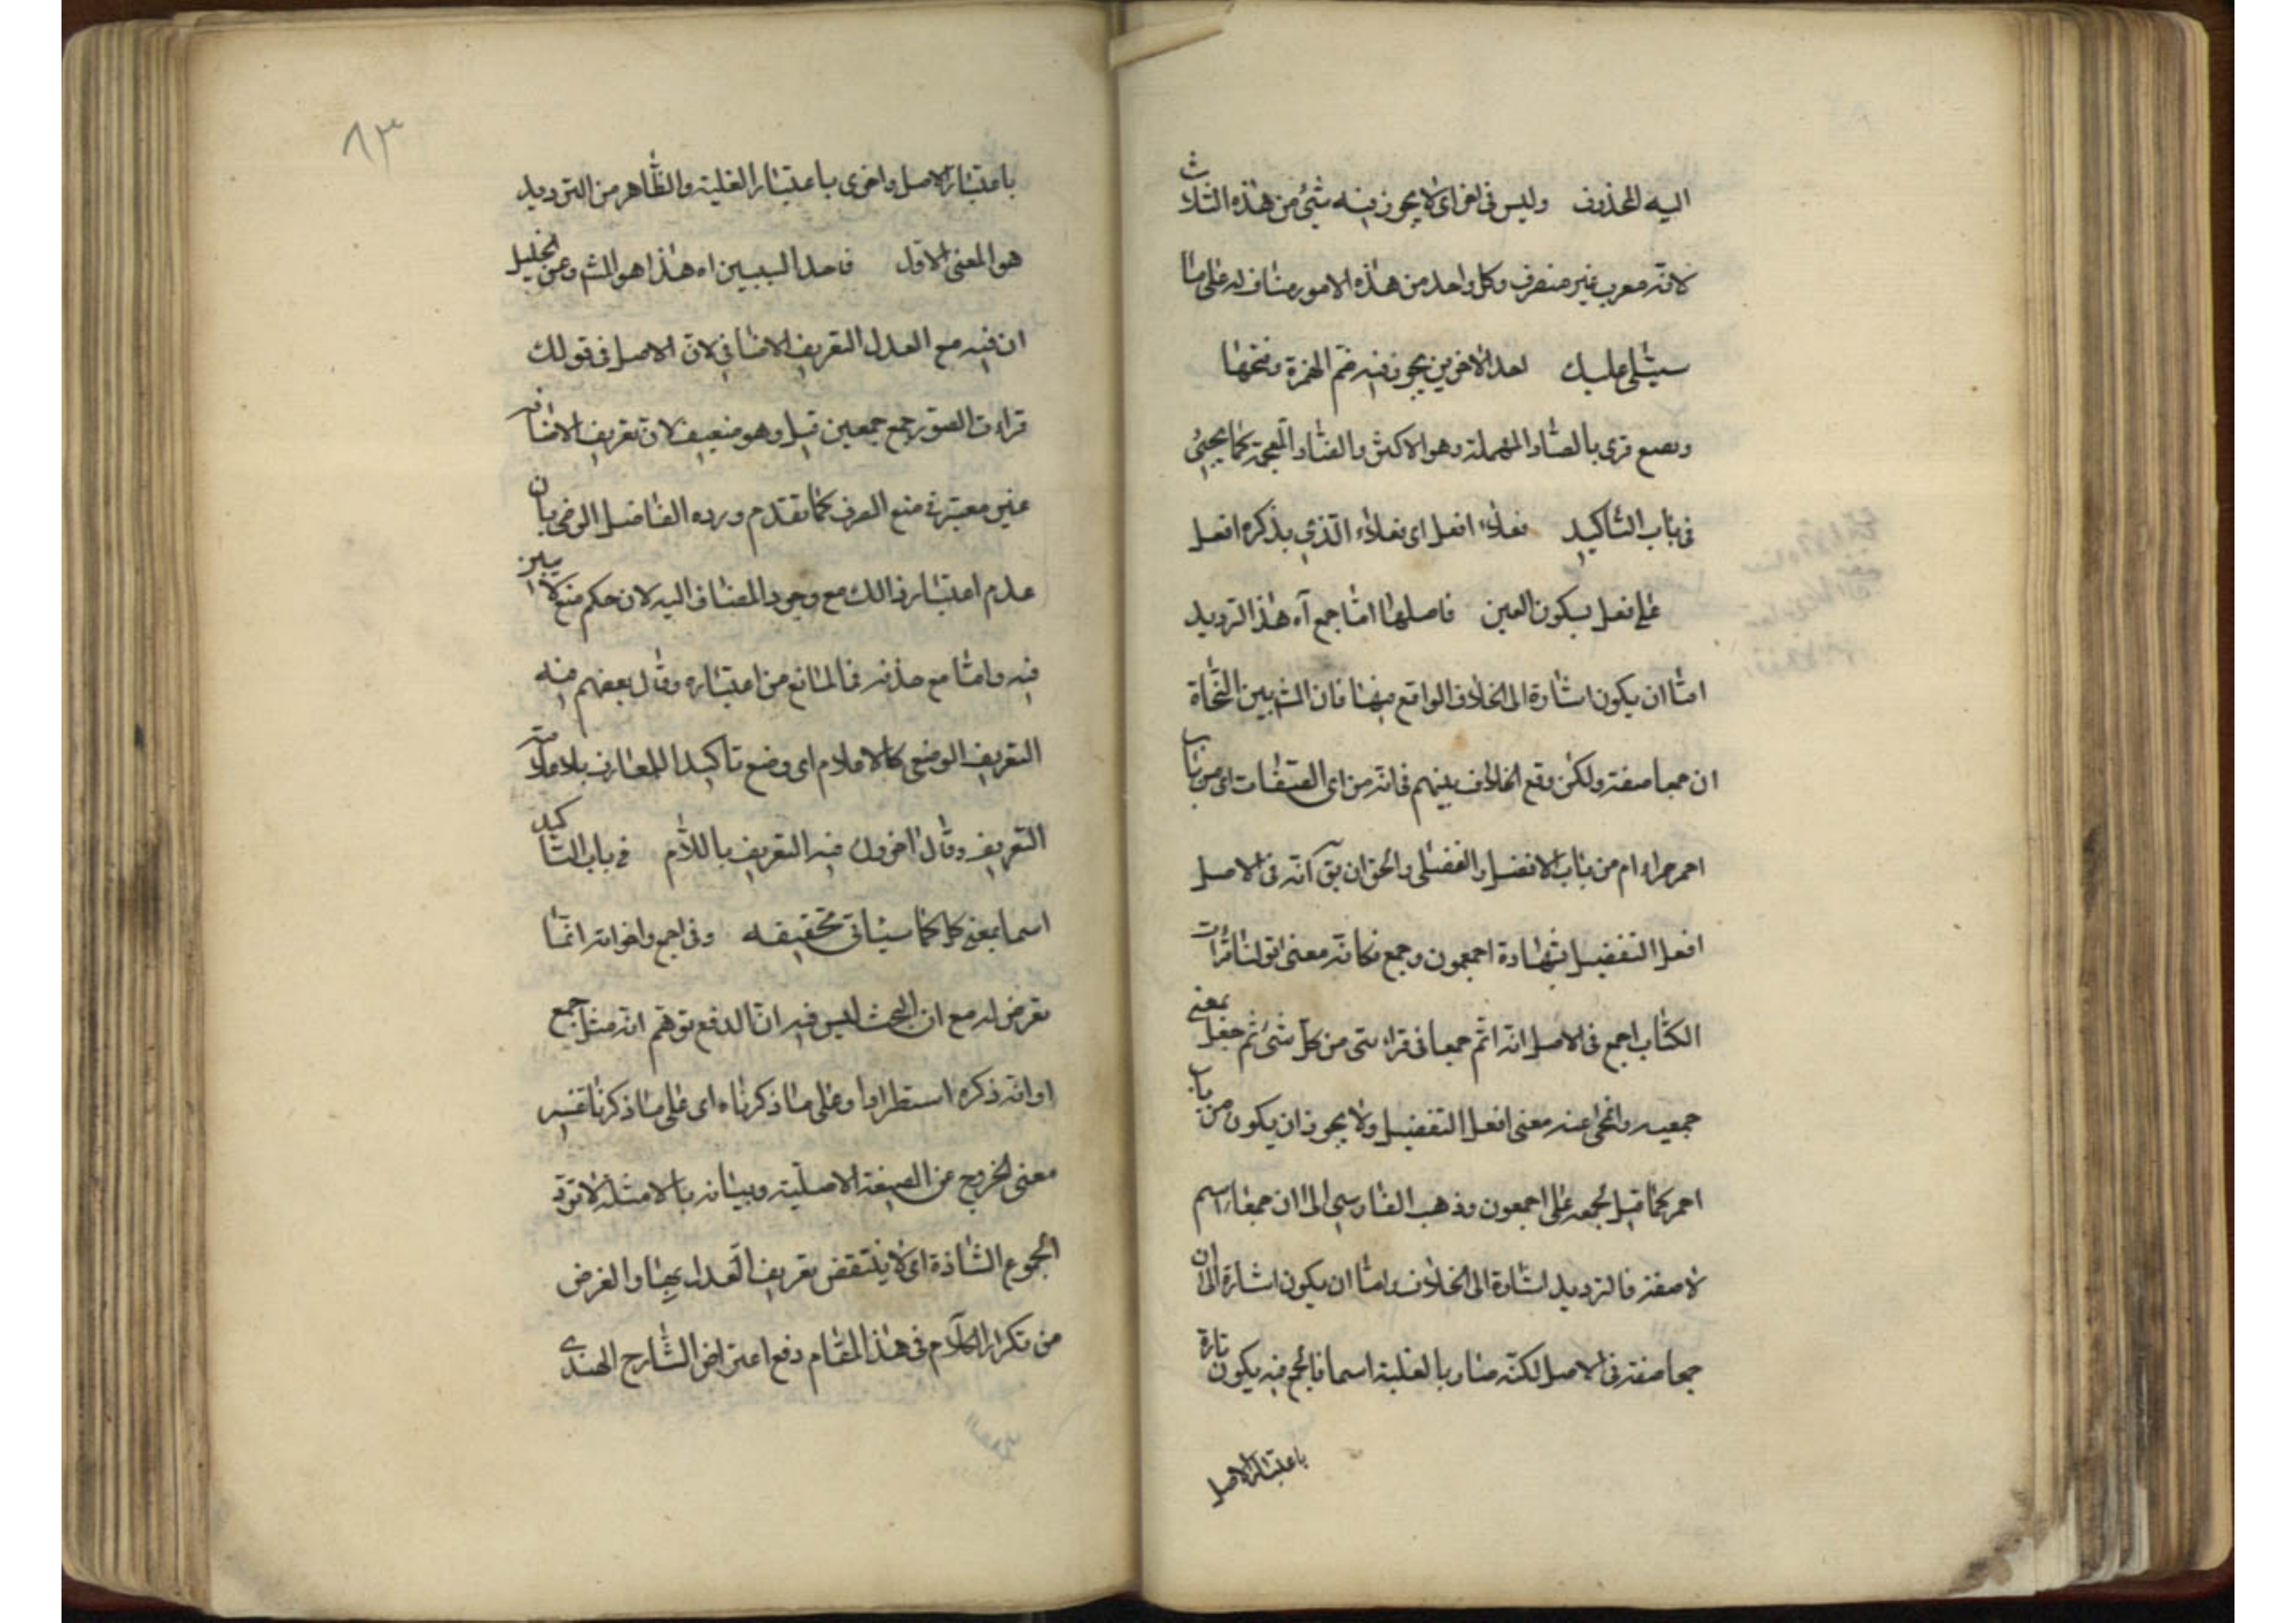 اليه المحذوف وليس في اخر اى لا يجوز فيه شئ من هذه الثلاث
لانه معرب غير منصرف وكل واحد من هذه الامور مناف له على ما
سيتلى عليك احد الاخرين يجوز فيه ضم الهمزة وفتحها
وبصع قرى بالصاد المهملة وهو الاكثر والضاد المعجمة كما يجيئ
في باب التاكيد فعلاء افعل اى فعلاء الذي يذكره افعل
على فعل بسكون العين فاصلها اما جمع آه هذا الترديد
اما ان يكون اشارة الى الخلاف الواقع فيها فان المش بين النحاة
ان جمعا صفة ولكن وقع الخلاف بينهم فانه من اى الصفات اى من باب
احمر حمراء ام من باب الافضل والفضلى والحق ان يق انه في الاصل
افعل التفضيل بشهادة اجمعون وجمع فكانه معنى قولنا قرات
الكتاب اجمع في الاصل انه اتم جمعا في قراءتى من كل شئ ثم جعل بمعنى
جميعه وانمحى عنه معنى افعل التفضيل ولا يجوز ان يكون من باب
احمر كما قيل لجمعه على اجمعون وذهب الفارسي الى ان جمعاء اسم
لا صفة فالترديد اشارة الى الخلاف واما ان يكون اشارة الى ان
جمعا صفة في الاصل لكنه صار بالغلبة اسما فالجمع فيه يكون تارة
باعتبار الاصل
٨٣
باعتبار الاصل واخرى باعتبار الغلبة والظاهر من الترديد
هو المعنى الاول فاحد السببين اه هذا هو المش وعن الخليل
ان فيه مع العدل التعريف الاضافي لان الاصل في قولك
قراءت الصور جمع جمعهن قيل وهو ضعيف لان تعريف الاضافه
غير معتبر في منع الصرف كما تقدم ورده الفاضل الرضي بان
عدم اعتبار ذالك مع وجود المضاف اليه لان حكم منع لا يتبين
فيه واما مع حذفه فما المانع من اعتباره وقال بعضهم فيه
التعريف الوضعي كالاعلام اى وضع تاكيدا للمعارف بلا علامة
التعريف وقال اخرون فيه التعريف باللام في باب التاكيد
اسما بمعنى كل كما سياتى تحقيقه وفي اجمع واخواته انما
تعرض له مع ان البحث ليس فيه اما لدفع توهم انه مثل جمع
او انه ذكره استطرادا وعلى ما ذكرناه اى على ما ذكرنا تفسير
معنى الخروج عن الصيغة الاصلية وبيانه بالامثلة لا ترد
الجموع الشاذة اى لا ينتقض تعريف العدل بها والغرض
من تكرار الكلام في هذا المقام دفع اعتراض الشارح الهندى